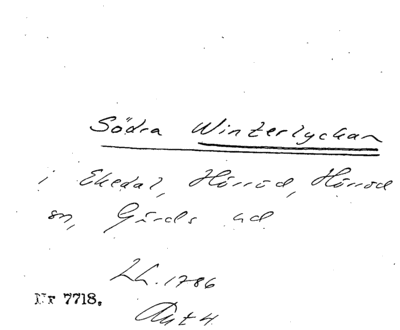 Södra Winterlyckan
i Ekedal, Hörröd, Hörröd
sn, Gärds hd
Lk. 1786
Akt 4
Nr 7718.